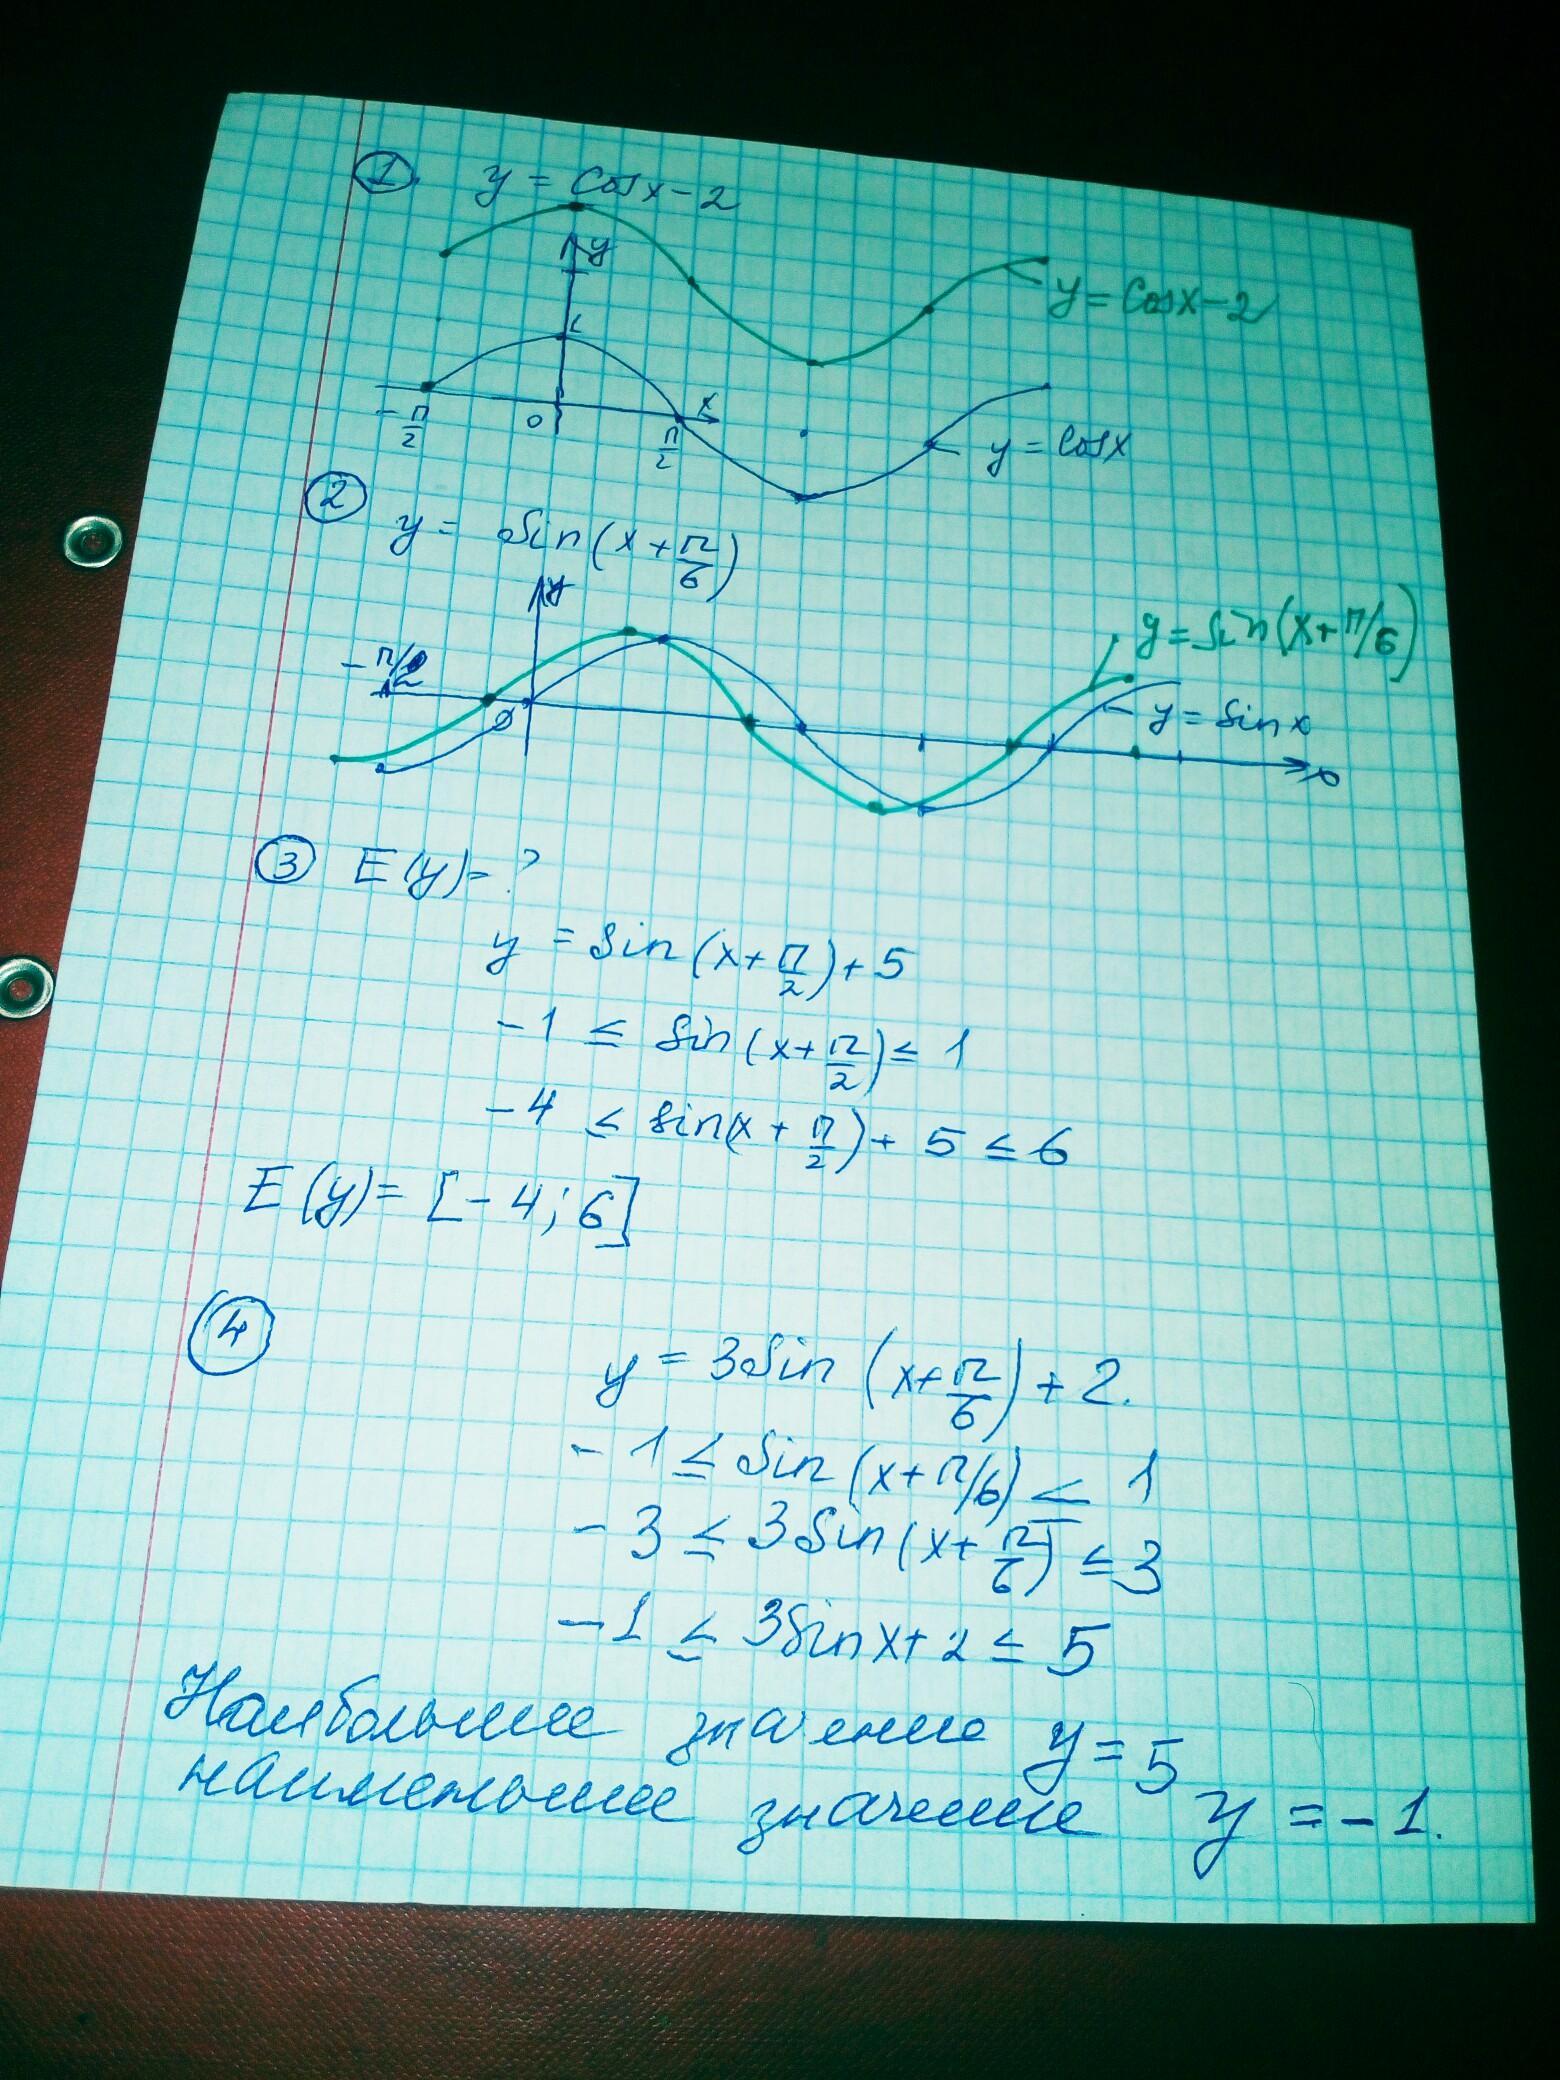 1. y = cosx - 2
y
y = cosx - 2
1
x
- π/2
0
π/2
y = cosx
2
y = sin(x + π/6)
y
y = sin(x + π/6)
- π/2
0
y = sin x
x
3 E(y) = ?
y = sin(x + π/2) + 5
-1 ≤ sin(x + π/2) ≤ 1
-4 ≤ sin(x + π/2) + 5 ≤ 6
E(y) = [-4; 6]
4
y = 3sin(x + π/6) + 2.
-1 ≤ sin(x + π/6) ≤ 1
-3 ≤ 3sin(x + π/6) ≤ 3
-1 ≤ 3sinx + 2 ≤ 5
Наибольшее значение y = 5
наименьшее значение y = -1.